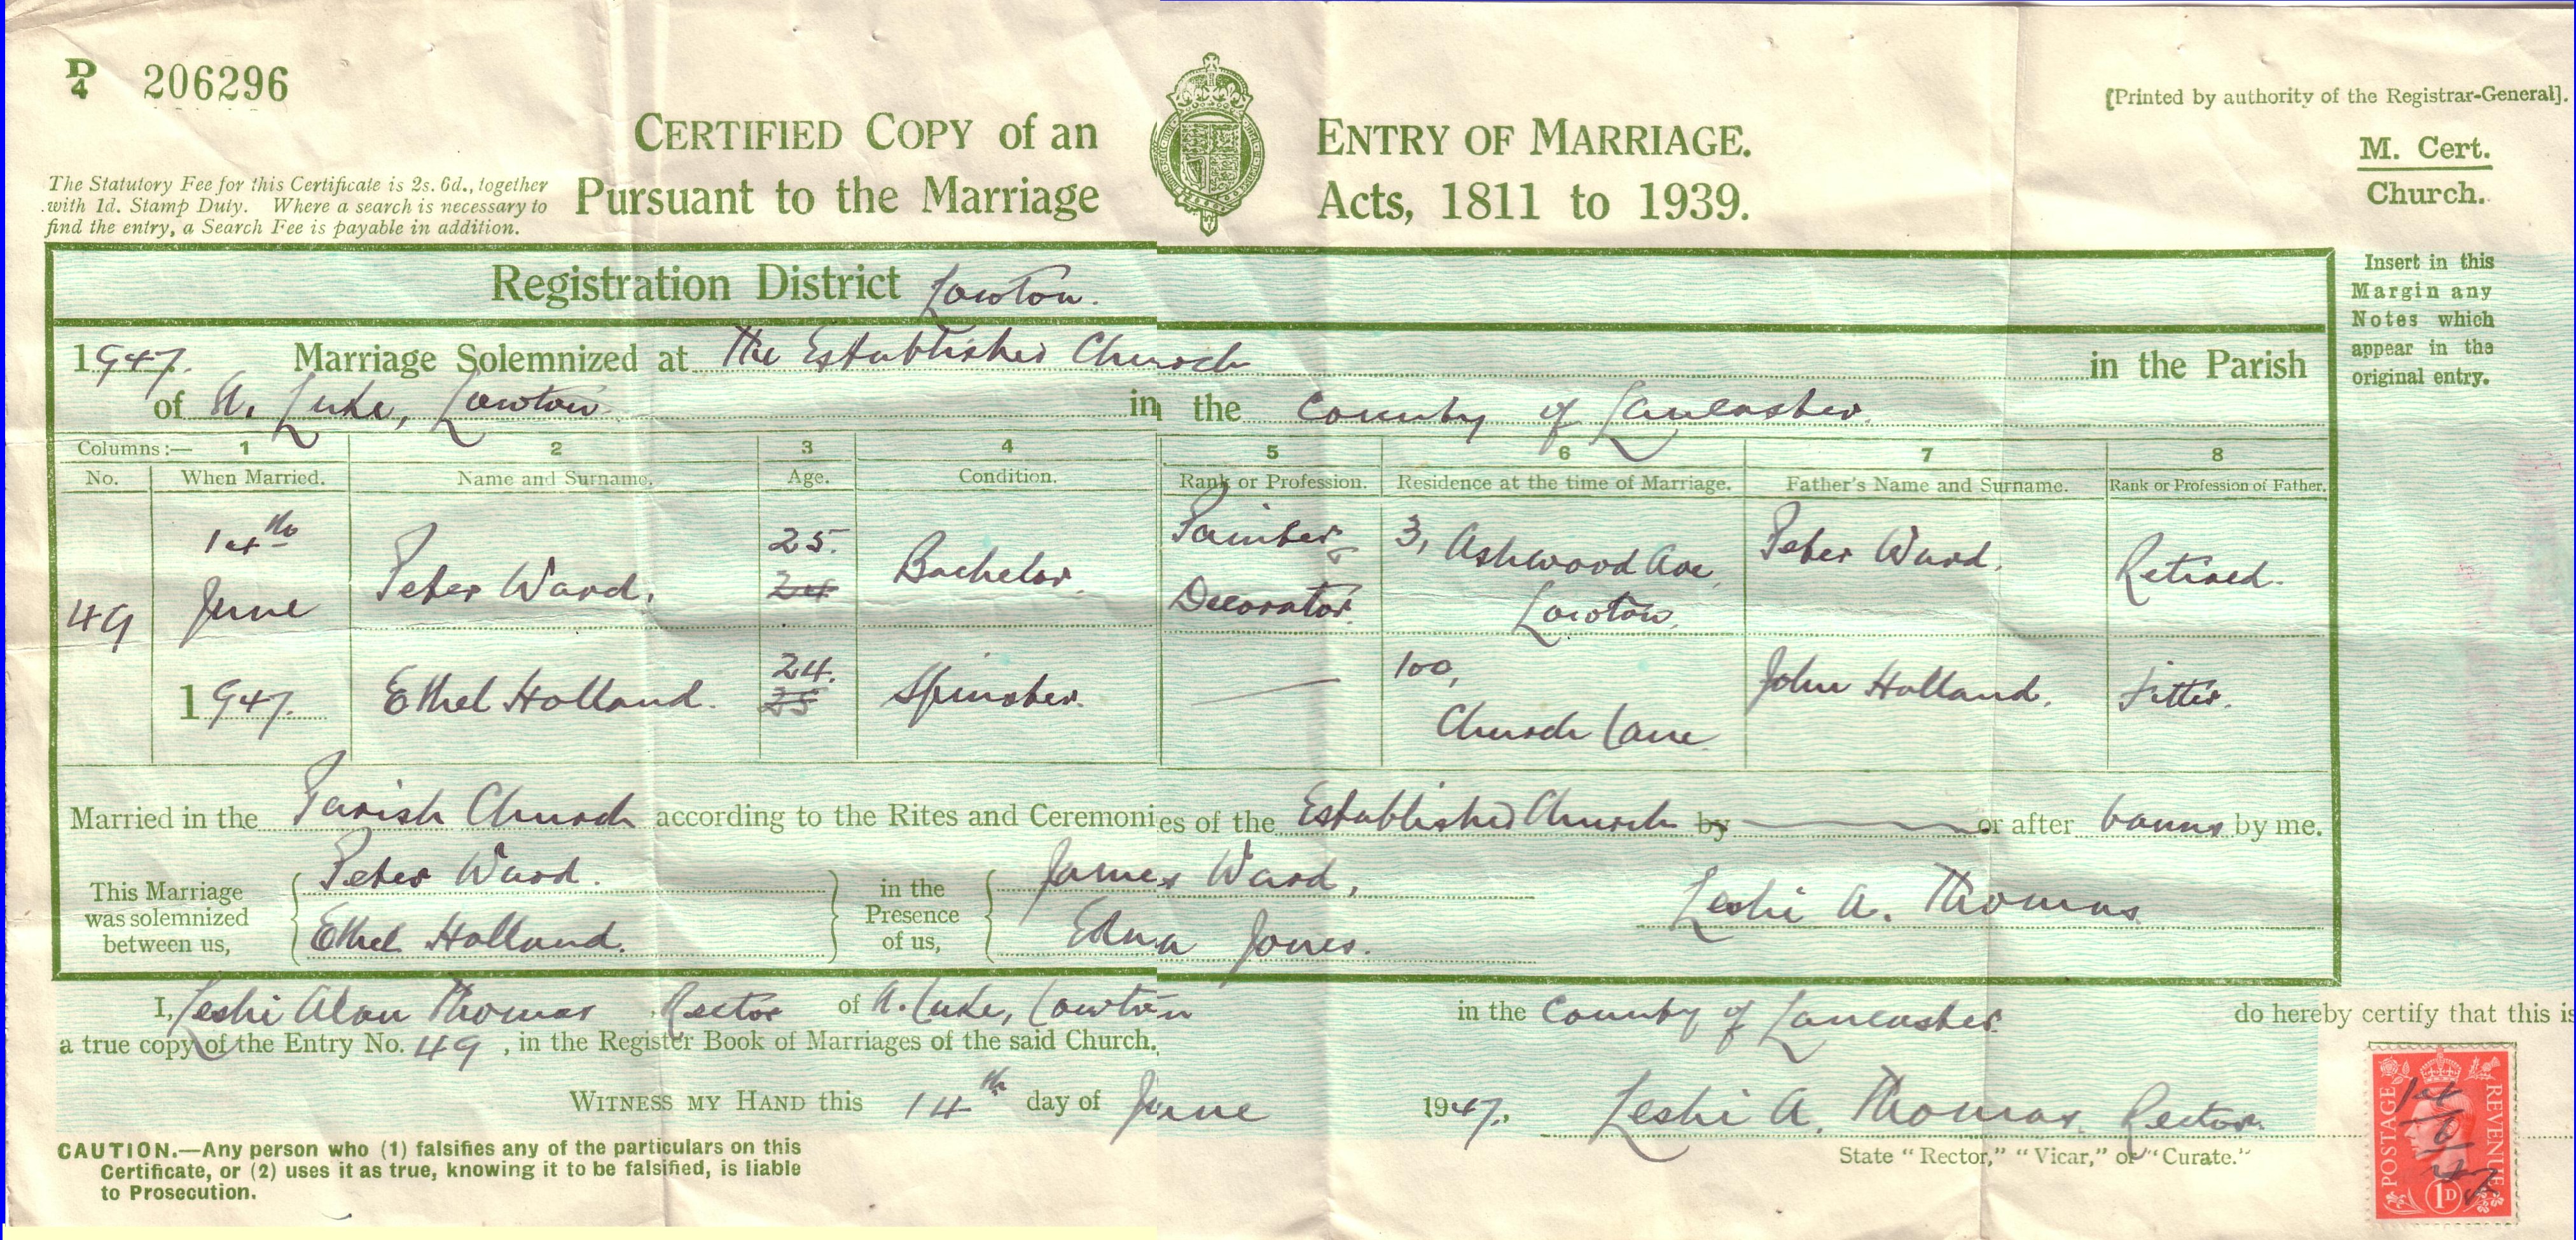 D/4 206296
[Printed by authority of the Registrar-General].
CERTIFIED COPY of an ENTRY OF MARRIAGE.
Pursuant to the Marriage Acts, 1811 to 1939.
M. Cert.
Church.
The Statutory Fee for this Certificate is 2s. 6d., together
with 1d. Stamp Duty. Where a search is necessary to
find the entry, a Search Fee is payable in addition.
Insert in this
Margin any
Notes which
appear in the
original entry.
Registration District Lowton.
1947. Marriage Solemnized at The Established Church in the Parish
of St. Luke, Lowton in the County of Lancaster.
Columns :— 1 2 3 4 5 6 7 8
No. When Married. Name and Surname. Age. Condition. Rank or Profession. Residence at the time of Marriage. Father's Name and Surname. Rank or Profession of Father.
49
14th
June
1947.
Peter Ward.
25.
24
Bachelor.
Painter &
Decorator.
3, Ashwood Ave,
Lowton.
Peter Ward.
Retired.
Ethel Holland.
24.
25
Spinster.
100,
Church Lane
John Holland.
Fitter.
Married in the Parish Church according to the Rites and Ceremonies of the Established Church by or after banns by me.
This Marriage
was solemnized
between us,
Peter Ward.
Ethel Holland.
in the
Presence
of us,
James Ward,
Edna Jones.
Leslie A. Thomas
I, Leslie Alan Thomas Rector of St. Luke, Lowton in the County of Lancaster do hereby certify that this is
a true copy of the Entry No. 49, in the Register Book of Marriages of the said Church.
WITNESS MY HAND this 14th day of June 1947. Leslie A. Thomas. Rector.
State "Rector," "Vicar," or "Curate."
CAUTION.—Any person who (1) falsifies any of the particulars on this
Certificate, or (2) uses it as true, knowing it to be falsified, is liable
to Prosecution.
POSTAGE
REVENUE
1D
14
6
47